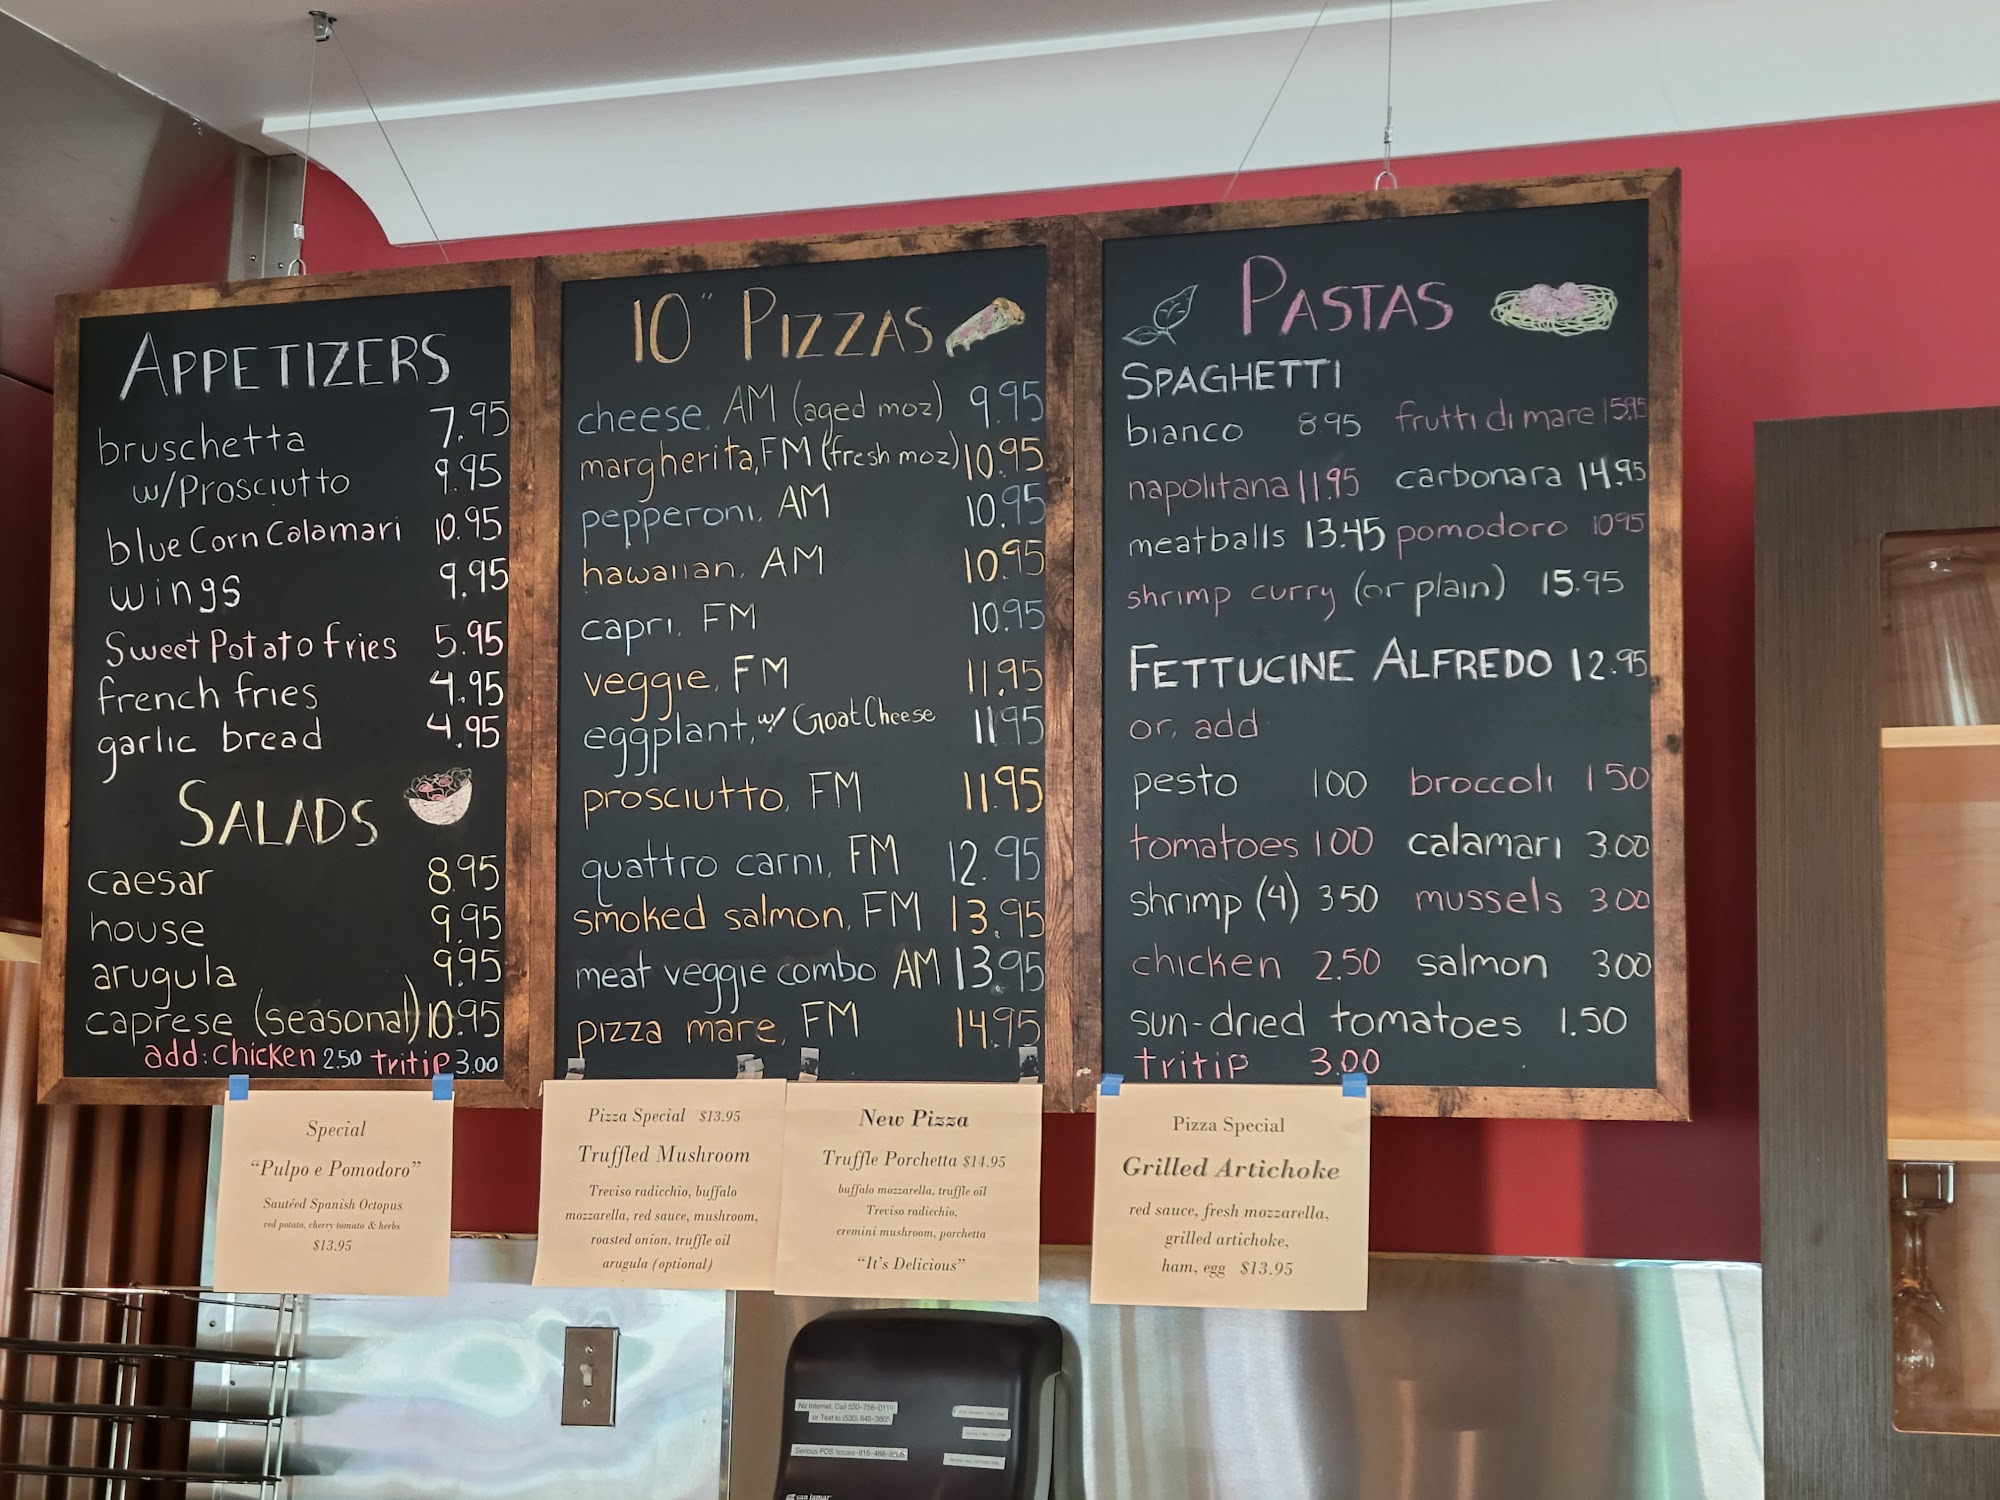 APPETIZERS
bruschetta 7.95
w/Prosciutto 9.95
blue Corn Calamari 10.95
wings 9.95
Sweet Potato fries 5.95
french fries 4.95
garlic bread 4.95
SALADS
caesar 8.95
house 9.95
arugula 9.95
caprese (seasonal) 10.95
add: Chicken 2.50 tritip 3.00
10" PIZZAS
cheese, AM (aged moz) 9.95
margherita, FM (fresh moz) 10.95
pepperoni, AM 10.95
hawaiian, AM 10.95
capri, FM 10.95
veggie, FM 11.95
eggplant, w/ Goat Cheese 11.95
prosciutto, FM 11.95
quattro carni, FM 12.95
smoked salmon, FM 13.95
meat veggie combo AM 13.95
pizza mare, FM 14.95
PASTAS
SPAGHETTI
bianco 8.95 frutti di mare 15.95
napolitana 11.95 carbonara 14.95
meatballs 13.45 pomodoro 10.95
shrimp curry (or plain) 15.95
FETTUCINE ALFREDO 12.95
or, add
pesto 1 00 broccoli 1 50
tomatoes 1 00 calamari 3.00
shrimp (4) 3 50 mussels 3.00
chicken 2.50 salmon 3 00
sun-dried tomatoes 1.50
tritip 3.00
Special
"Pulpo e Pomodoro"
Sautéed Spanish Octopus
red potato, cherry tomato & herbs
$13.95
Pizza Special $13.95
Truffled Mushroom
Treviso radicchio, buffalo
mozzarella, red sauce, mushroom,
roasted onion, truffle oil
arugula (optional)
New Pizza
Truffle Porchetta $14.95
buffalo mozzarella, truffle oil
Treviso radicchio,
cremini mushroom, porchetta
"It's Delicious"
Pizza Special
Grilled Artichoke
red sauce, fresh mozzarella,
grilled artichoke,
ham, egg $13.95
No Internet, Call 530-758-0110
or Text to (530) 848-3865
Serious POS Issues-916-488-
san jamar